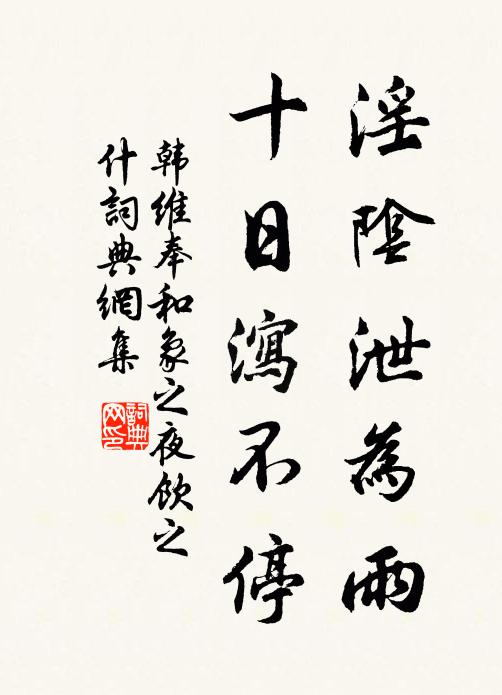 淫陰泄為雨
十日瀉不停
韩维奉和象之夜飲之
什詞典網集
詞典
网印